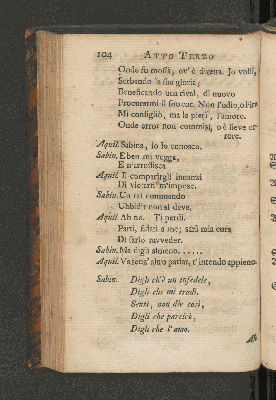 104 ATTO TERZO
Onde fu mossa, ov' è diretta. Io volli,
Serbando la sua gloria;
Beneficando una rival, di nuovo
Procurarmi il suo cor. Non l'odio, o l'ira
Mi consigliò, ma la pietà, l'amore.
Onde error non commisi, o è lieve er-
rore.
Aquil. Sabina, io lo conosco.
Sabin. E ben mi vegga,
E n'arrossisca
Aquil. E comparirgli innanzi
Di vietarti m'impose.
Sabin. Un tal commando
Ubbidir non si deve.
Aquil. Ah no. Ti perdi.
Parti, fidati a me; sarà mia cura
Di farlo ravveder.
Sabin. Ma digli almeno. . . . . .
Aquil. Va senz' altro parlar, t'intendo appieno.
Sabin. Digli ch'è un infedele,
Digli che mi tradì.
Senti, non dir così,
Digli che partirò,
Digli che l'amo.